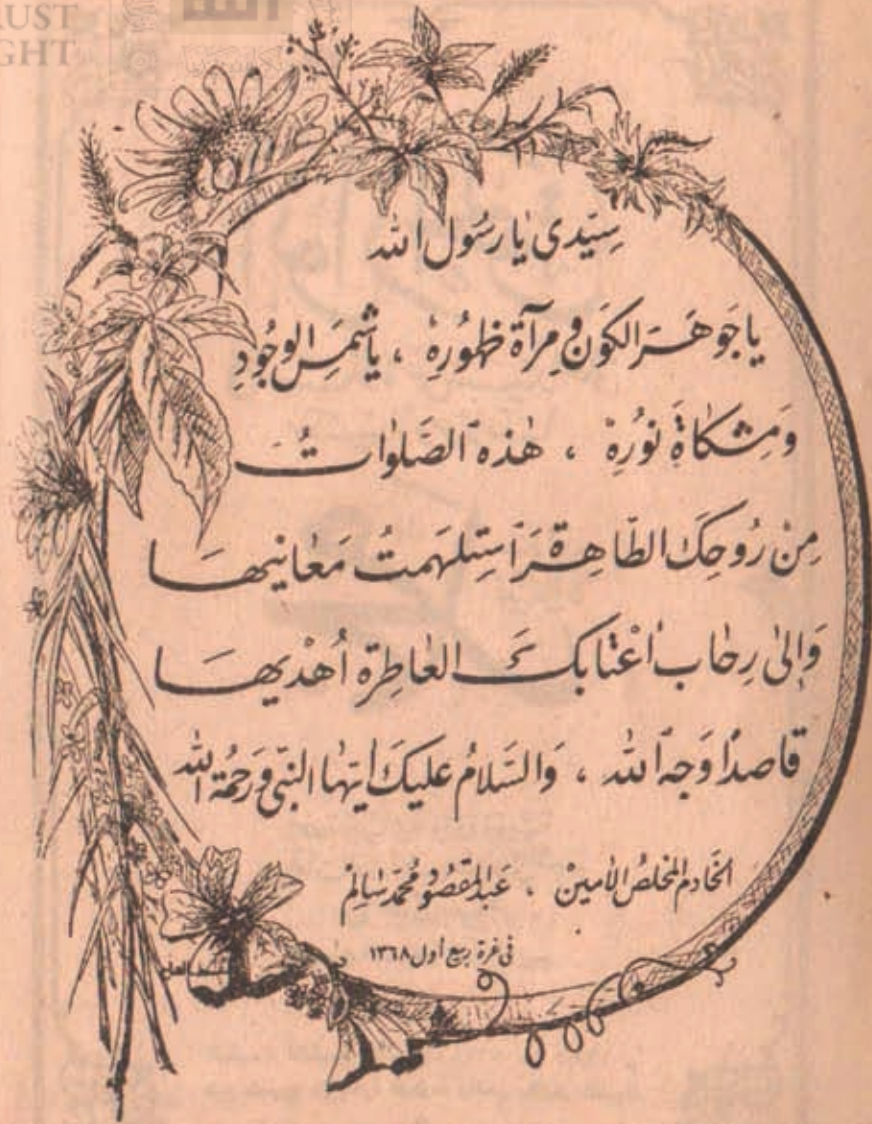 UST
GHT
سيدى يا رسول الله
يا جوهر الكون ومرآة ظهوره ، يا شمس الوجود
ومشكاة نوره ، هذه الصلوات
من روحك الطاهرة استلهمت معانيها
وإلى رحاب أعتابك العاطرة أهديها
قاصدا وجه الله ، والسلام عليك أيها النبى ورحمة الله
الخادم المخلص الأمين ، عبد المقصود محمد سالم
فى غرة ربيع أول ١٣٦٨